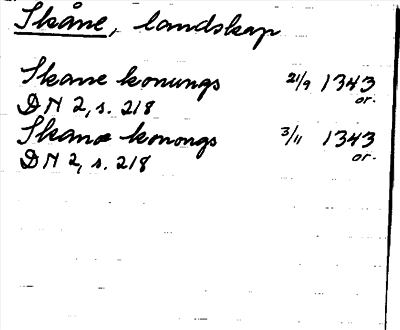 Skåne, landskap
Skane konungs 21/9 1343
DN 2, s. 218 or.
Skanæ konongs 3/11 1343
DN 2, s. 218 or.